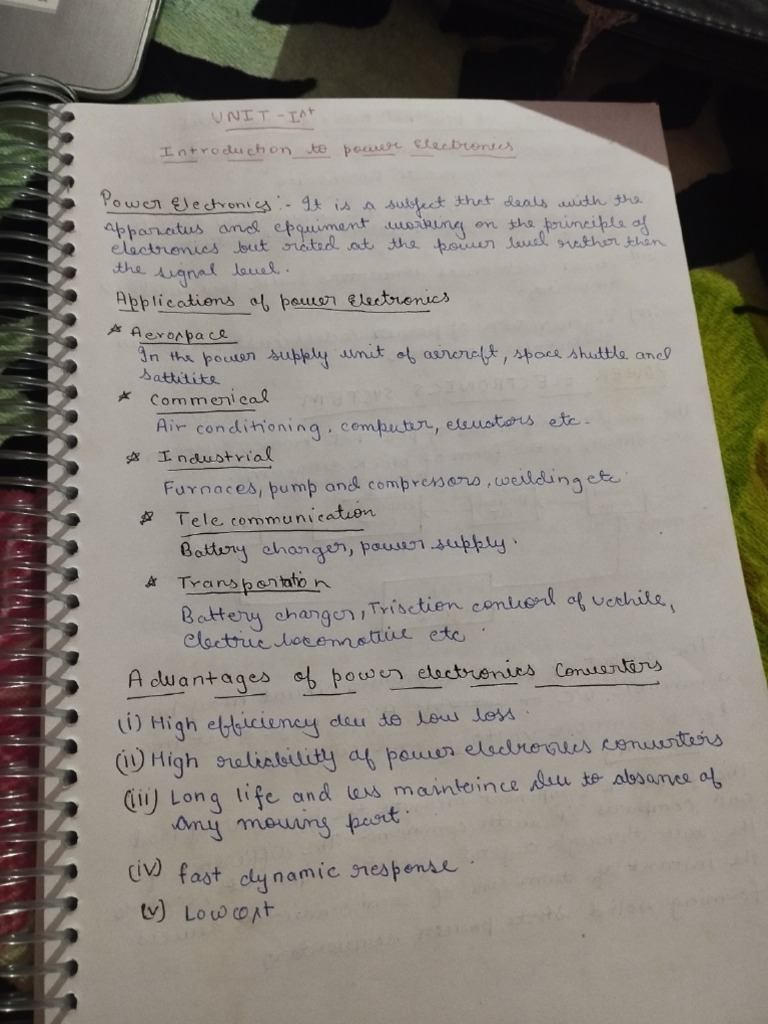 UNIT - Ist
Introduction to power Electronics
Power Electronics :- It is a subject that deals with the
apparatus and epquiment working on the principle of
electronics but rated at the power level rather then
the signal level.
Applications of power Electronics
* Aerospace
In the power supply unit of aercraft, space shuttle and
Sattitite
* Commerical
Air conditioning, computer, elevators etc.
* Industrial
Furnaces, pump and compressors, weilding etc
* Tele communication
Battery charger, power supply.
* Transportation
Battery charger, Trisction control of vechile,
Electric locomotive etc.
Advantages of power electronics Converters
(i) High efficiency deu to low loss.
(ii) High reliability of power electronics converters
(iii) Long life and less mainteince deu to absance of
any moving part.
(iv) fast dynamic response.
(v) Low cost